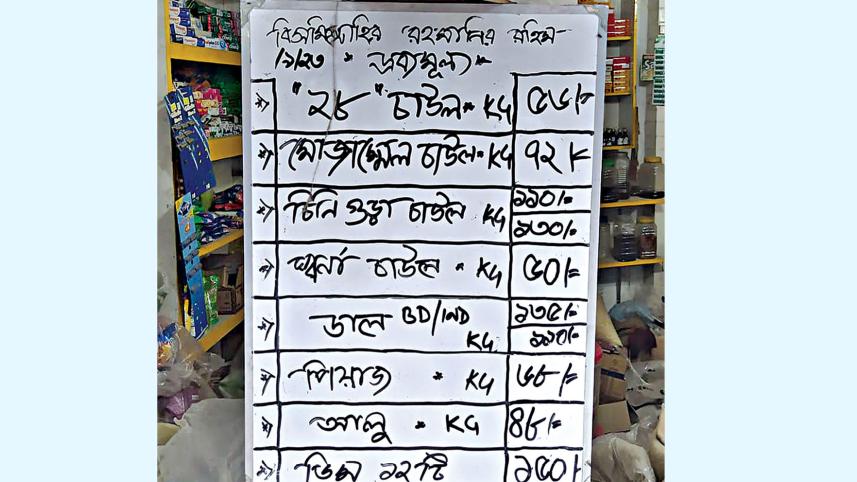 বিসমিল্লাহির রহমানির রহিম
১/৯/২৩ * দ্রব্যমূল্য *
"২৮" চাউল * KG ৫৬/=
মোজাম্মেল চাউল * KG ৭২/=
চিনি গুড়া চাউল KG ১১০/=
১৩০/=
স্বর্না চাউল * KG ৫০/=
ডাল BD/IND KG ১৩৫/=
১১০/=
পিয়াজ * KG ৬৮/=
আলু * KG ৪৮/=
ডিম ১২টি ১৫০/=